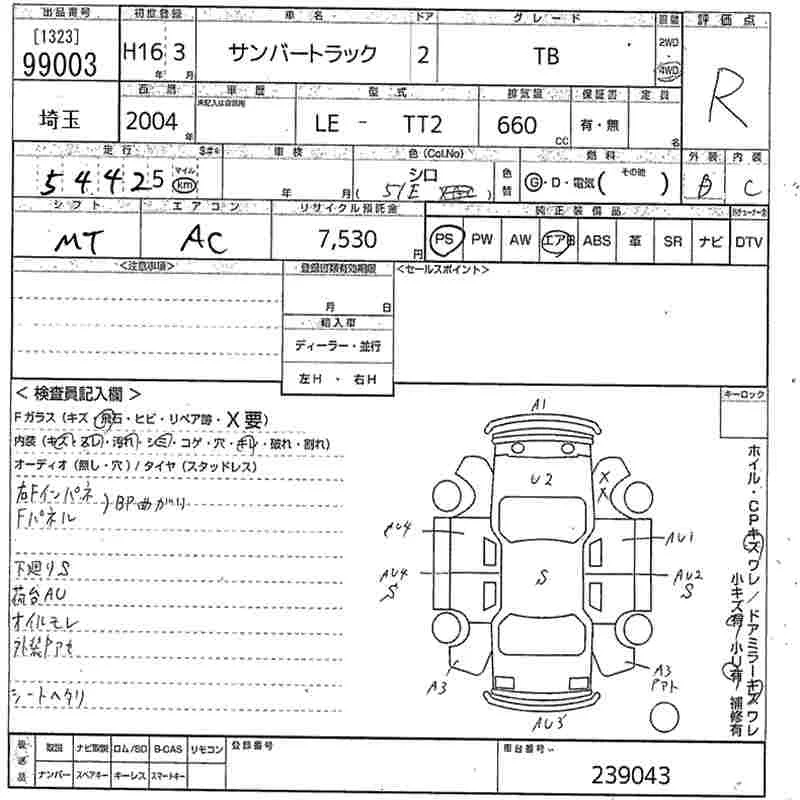 出品番号 初度登録 車名 ドア グレード 評価点
[1323]
99003 H16 3 サンバートラック 2 TB 2WD 4WD R
年 月
西暦 車歴 型式 排気量 保証書 定員
未記入は自家用
埼玉 2004年 LE - TT2 660cc 有・無 名
走行 車検 色(Col.No) 燃料 外装 内装
54425 マイル km 年 月 シロ (51E) 色替 G・D・電気 (その他) B C
シフト エアコン リサイクル預託金 純正装備品
MT AC 7,530円 PS PW AW エアB ABS 革 SR ナビ DTV
<注意事項> 登録書類有効期限 <セールスポイント>
月 日
輸入車
ディーラー・並行
左H・右H
<検査員記入欄> キーロック
Fガラス(キズ・飛石・ヒビ・リペア跡・X要)
内装(キズ・ヨゴレ・汚れ・シミ・コゲ・穴・キレ・破れ・割れ)
オーディオ(無し・穴)/タイヤ(スタッドレス)
右Fインパネ
Fパネル ) BP曲がり
下廻りS
荷台AU
オイルモレ
外装アセ
シートヘタリ
A1
U2 X X
AU4 AU1
AU4 S S AU2 S
A3 A3
アト
AU3
ホイル・CPキズワレ/ドアミラーキズワレ
小キズ有/小U有/補修有
取説 ナビ取説 ロム/SD B-CAS リモコン 登録番号 車台番号
ナンバー スペアキー キーレス スマートキー 239043